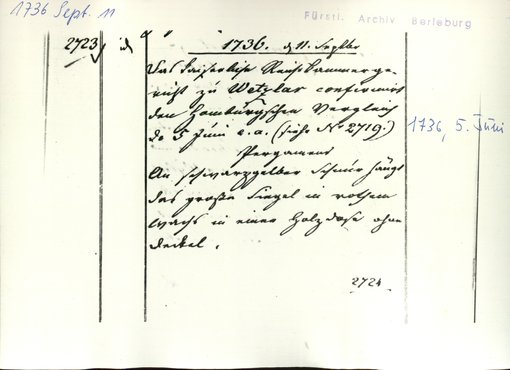 1736 Sept. 11
Fürstl. Archiv Berleburg
2723
1736. d 11. Septbr
Das Kaiserliche Reichskammerge-
richt zu Wetzlar confirmirt
den Homburgschen Vergleich
de 5 Juni e. a. (siehe No 2719.)
1736, 5. Juni
Pergament
An schwarzgelber Schnur hängt
das große Siegel in rothem
Wachs in einer Holzdose ohne
Deckel.
2724